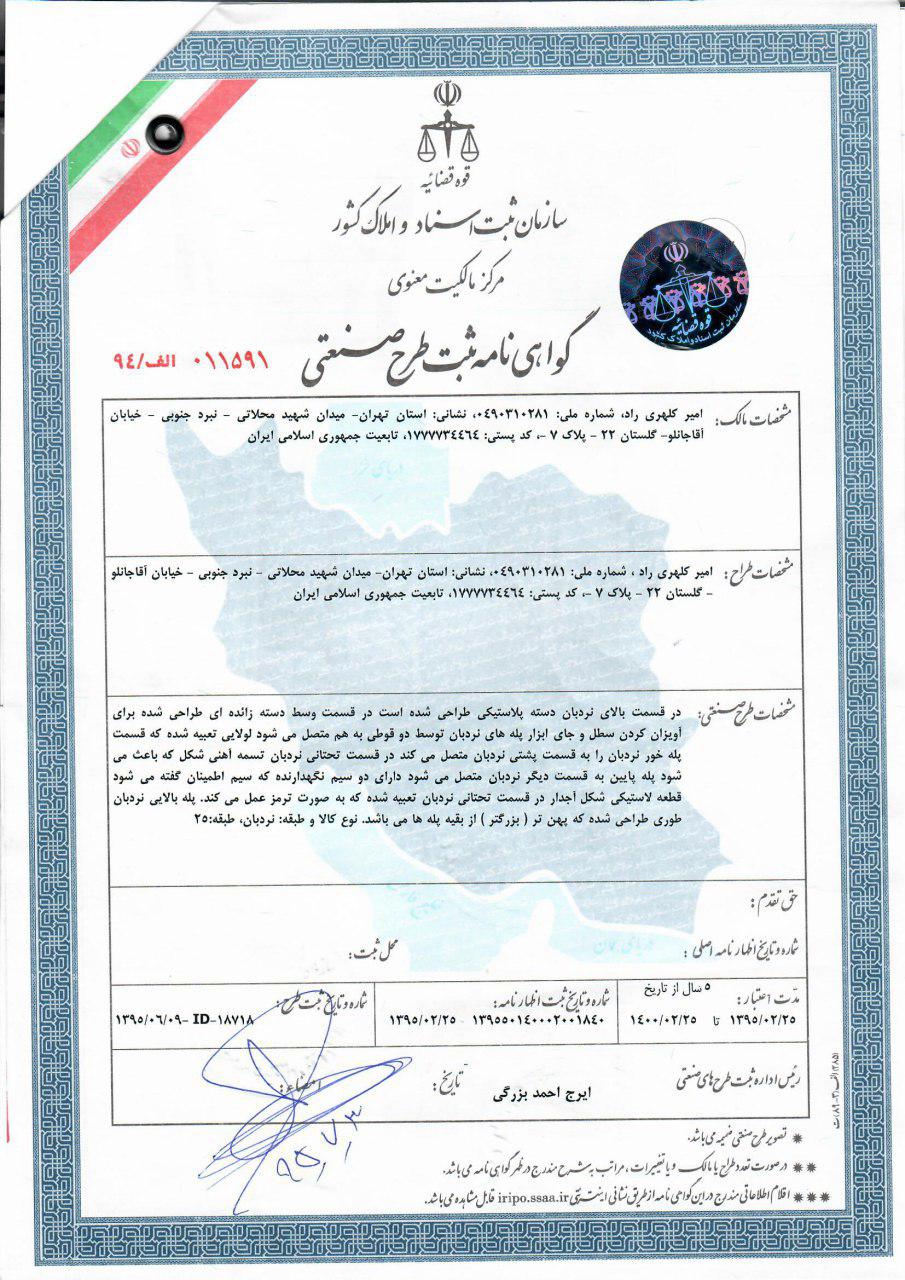 قوه قضائیه
سازمان ثبت اسناد و املاک کشور
مرکز مالکیت معنوی
قوه قضائیه
سازمان ثبت اسناد و املاک کشور
گواهی نامه ثبت طرح صنعتی
۰۱۱۵۹۱ الف/۹۴
مشخصات مالک: امیر کلهری راد، شماره ملی: ۰۴۹۰۳۱۰۲۸۱، نشانی: استان تهران- میدان شهید محلاتی - نبرد جنوبی - خیابان
آقاجانلو- گلستان ۲۲ - پلاک ۷ -، کد پستی: ۱۷۷۷۷۳۴۴۶۴، تابعیت جمهوری اسلامی ایران
دریای خزر
مشخصات طراح: امیر کلهری راد ، شماره ملی: ۰۴۹۰۳۱۰۲۸۱، نشانی: استان تهران- میدان شهید محلاتی - نبرد جنوبی - خیابان آقاجانلو
- گلستان ۲۲ - پلاک ۷ -، کد پستی: ۱۷۷۷۷۳۴۴۶۴، تابعیت جمهوری اسلامی ایران
مشخصات طرح صنعتی: در قسمت بالای نردبان دسته پلاستیکی طراحی شده است در قسمت وسط دسته زائده ای طراحی شده برای
آویزان کردن سطل و جای ابزار پله های نردبان توسط دو قوطی به هم متصل می شود لولایی تعبیه شده که قسمت
پله خور نردبان را به قسمت پشتی نردبان متصل می کند در قسمت تحتانی نردبان تسمه آهنی شکل که باعث می
شود پله پایین به قسمت دیگر نردبان متصل می شود دارای دو سیم نگهدارنده که سیم اطمینان گفته می شود
قطعه لاستیکی شکل آجدار در قسمت تحتانی نردبان تعبیه شده که به صورت ترمز عمل می کند. پله بالایی نردبان
طوری طراحی شده که پهن تر ( بزرگتر ) از بقیه پله ها می باشد. نوع کالا و طبقه: نردبان، طبقه:۲۵
حق تقدم:
شماره و تاریخ اظهارنامه اصلی: محل ثبت:
دریای عمان
مدت اعتبار: ۵ سال از تاریخ
۱۳۹۵/۰۲/۲۵ تا ۱۴۰۰/۰۲/۲۵
شماره و تاریخ ثبت اظهارنامه:
۱۳۹۵۵۰۱۴۰۰۰۲۰۰۱۸۴۰ - ۱۳۹۵/۰۲/۲۵
شماره و تاریخ ثبت طرح:
۱۳۹۵/۰۶/۰۹- ID-۱۸۷۱۸
رئیس اداره ثبت طرح های صنعتی
ایرج احمد بزرگی
تاریخ:
امضاء:
۹۵/۷/۳
* تصویر طرح صنعتی ضمیمه می باشد.
** در صورت تعدد طراح یا مالک و یا تغییرات، مراتب به شرح مندرج در ظهر گواهی نامه می باشد.
*** اقلام اطلاعاتی مندرج در این گواهی نامه از طریق نشانی اینترنتی iripo.ssaa.ir قابل مشاهده می باشد.